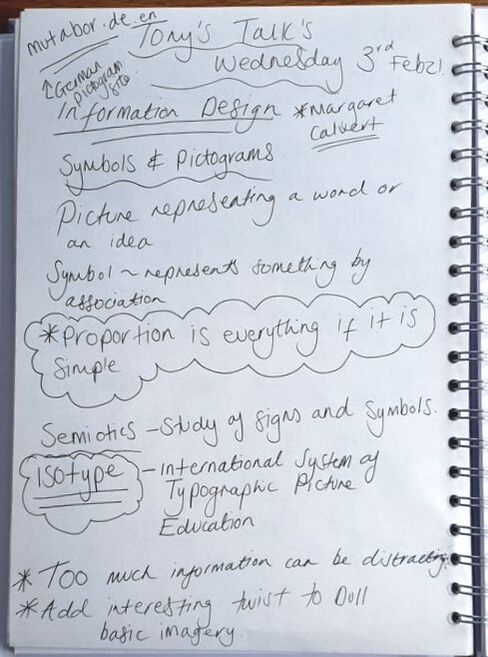 mutabor.de.en
Tony's Talk's
↑German
pictogram
site
Wednesday 3rd Feb21.
Information Design
*Margaret
Calvert
Symbols & Pictograms
Picture representing a word or
an idea
Symbol ~ represents something by
association
*Proportion is everything if it is
Simple
Semiotics - Study of signs and symbols.
ISOtype - International System of
Typographic Picture
Education
* Too much information can be distracting.
* Add interesting twist to Doll
basic imagery.